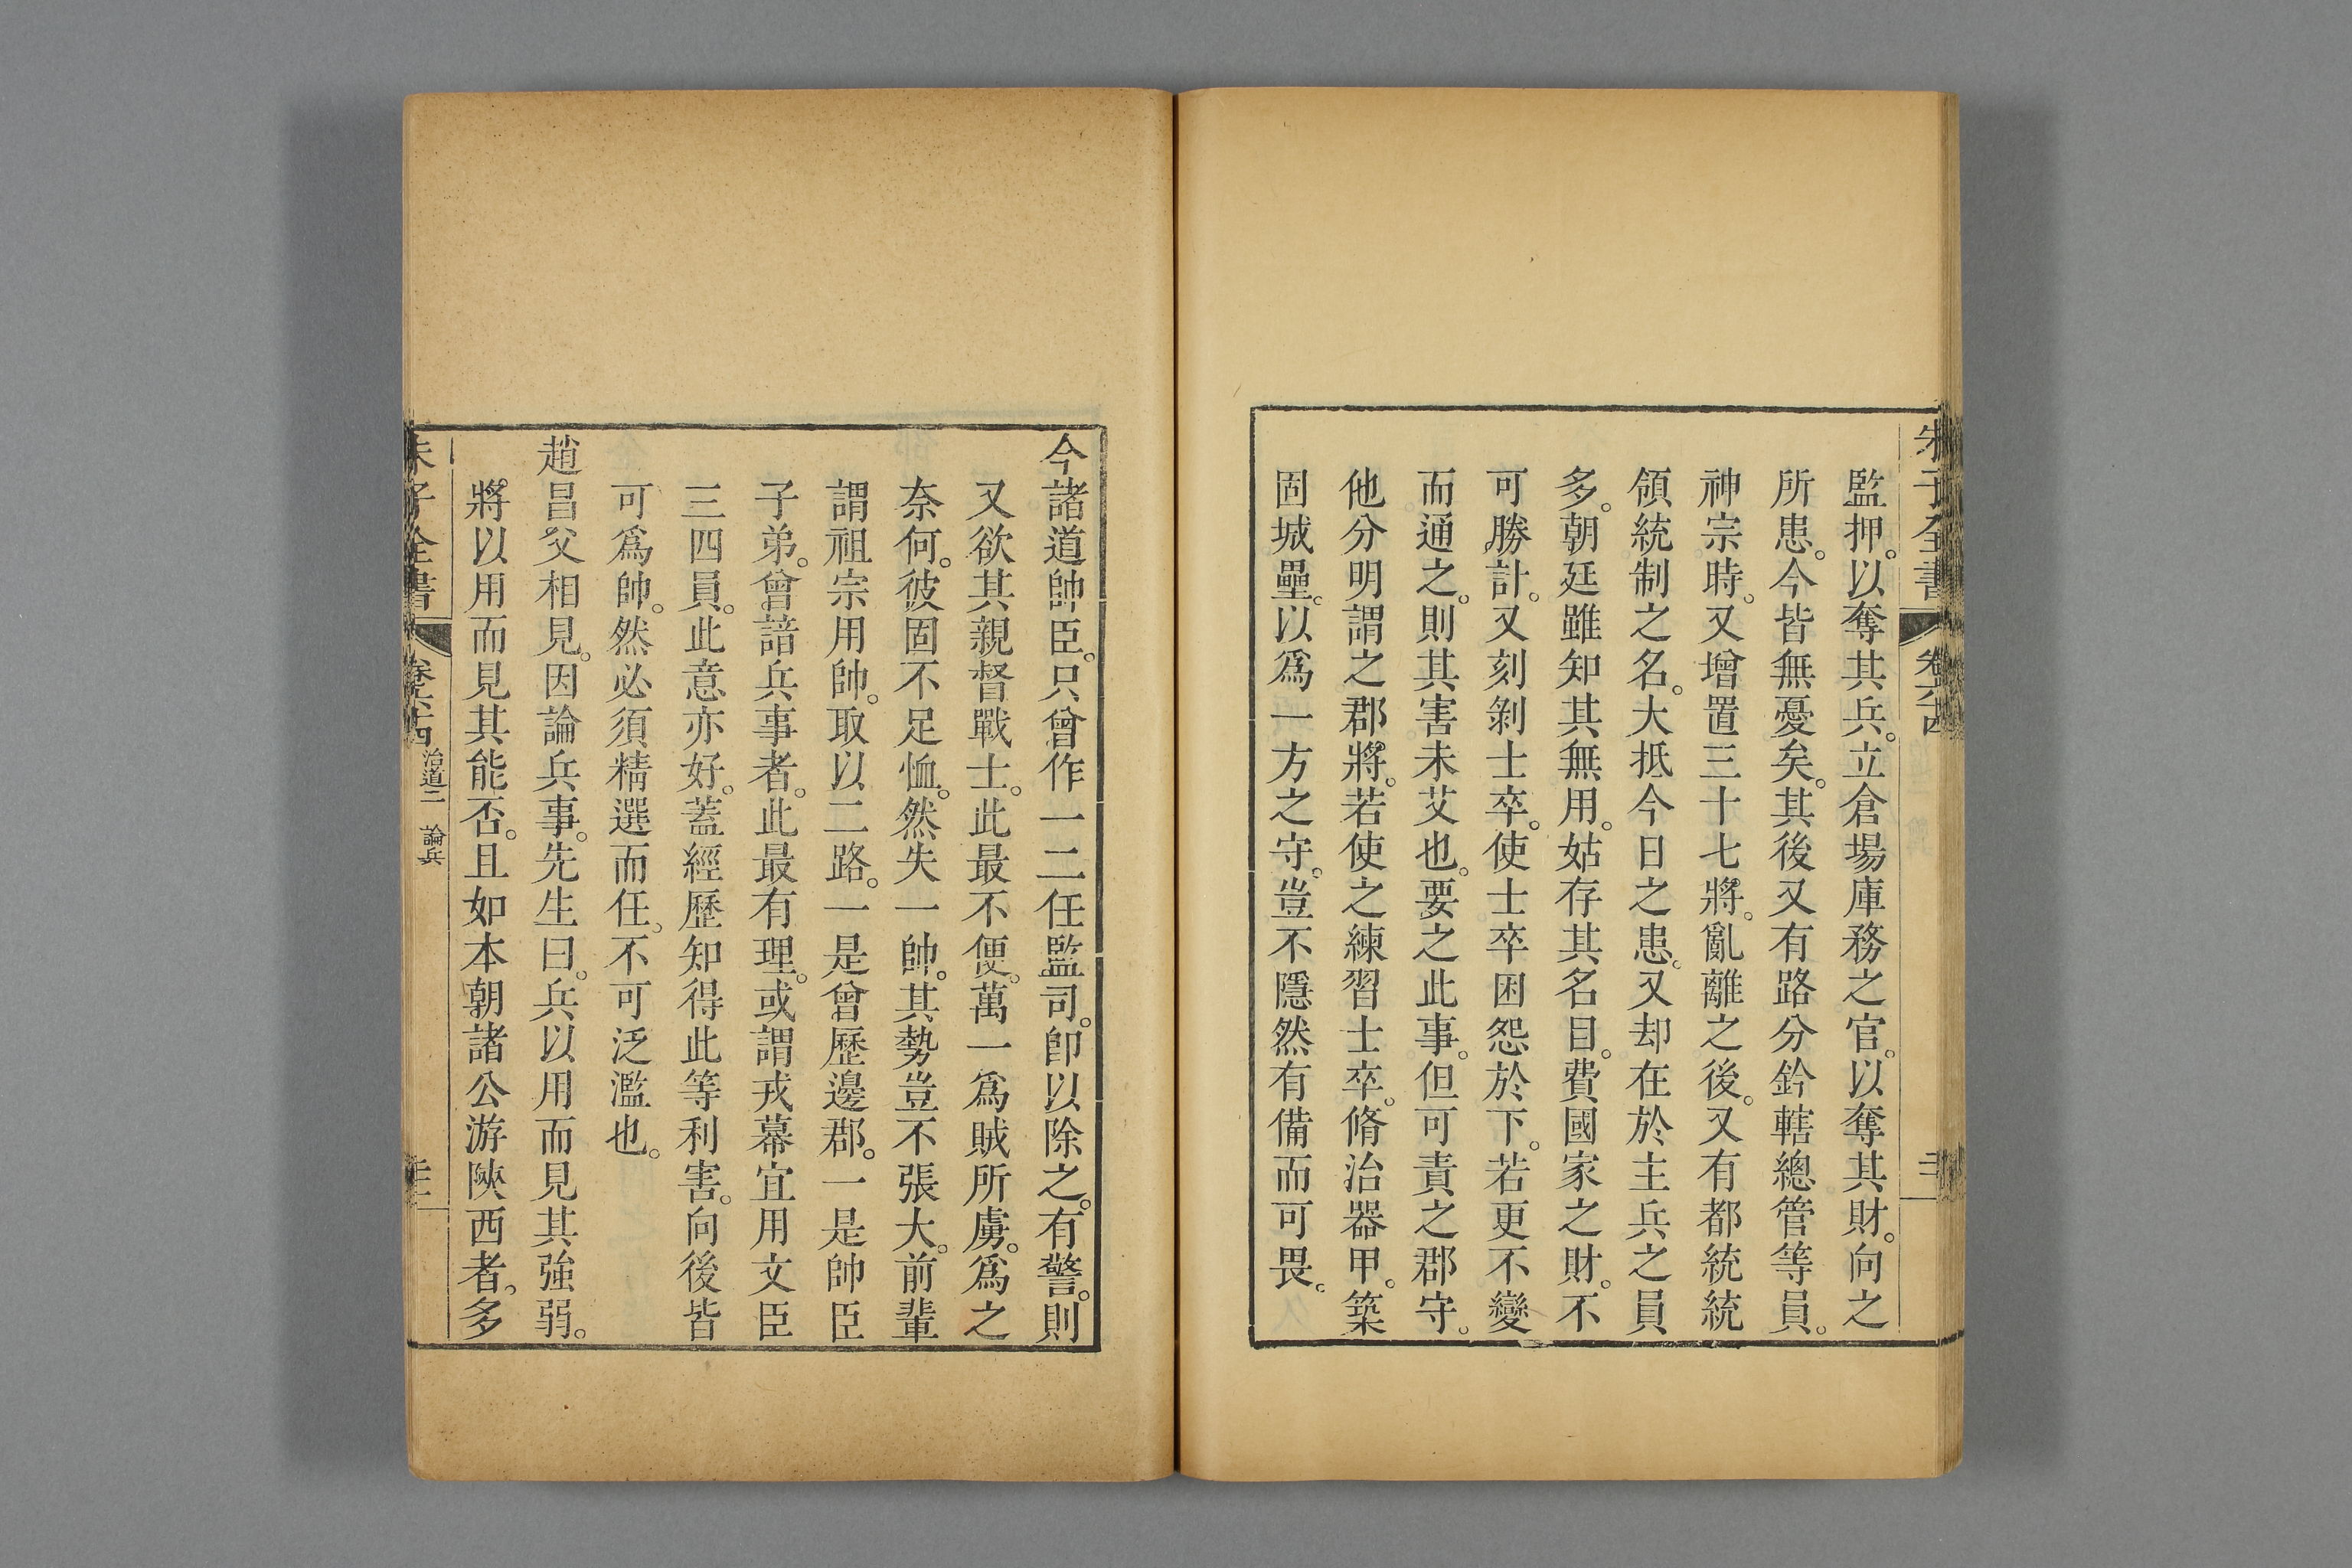 朱子全書 卷六十四
監押。以奪其兵。立倉場庫務之官。以奪其財。向之
所患。今皆無憂矣。其後又有路分鈐轄總管等員。
神宗時。又增置三十七將。亂離之後。又有都統統
領統制之名。大抵今日之患。又却在於主兵之員
多。朝廷雖知其無用。姑存其名目。費國家之財。不
可勝計。又刻剝士卒。使士卒困怨於下。若更不變
而通之。則其害未艾也。要之此事。但可責之郡守。
他分明謂之郡將。若使之練習士卒。脩治器甲。築
固城壘。以爲一方之守。豈不隱然有備而可畏。
今諸道帥臣。只曾作一二任監司。卽以除之。有警。則
又欲其親督戰士。此最不便。萬一爲賊所虜。爲之
奈何。彼固不足恤。然失一帥。其勢豈不張大。前輩
謂祖宗用帥。取以二路。一是曾歷邊郡。一是帥臣
子弟。曾諳兵事者。此最有理。或謂戎幕宜用文臣
三四員。此意亦好。蓋經歷知得此等利害。向後皆
可爲帥。然必須精選而任。不可泛濫也。
趙昌父相見。因論兵事。先生曰。兵以用而見其強弱。
將以用而見其能否。且如本朝諸公游陝西者。多
朱子全書 卷六十四 治道二 論兵